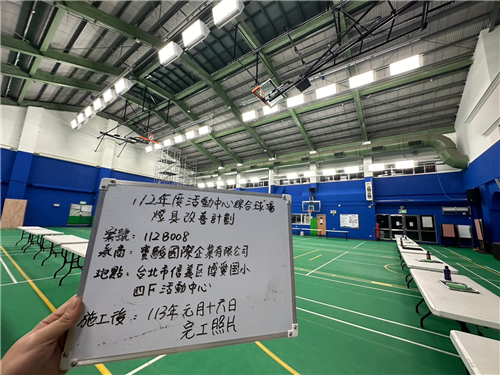 112年度活動中心綜合球場
燈具改善計劃
案號：112B008
承商：寶駿國際企業有限公司
地點：台北市信義區博愛國小
四F活動中心
施工後：113年元月十六日
完工照片